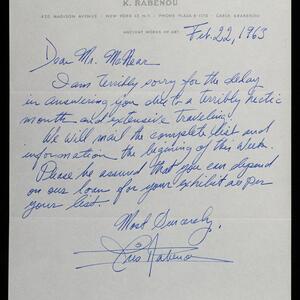 K. RABENOU
ANCIENT WORKS OF ART
Feb. 22, 1963
Dear Mr. McNear
I am terribly sorry for the delay
in answering you due to a terribly hectic
month and extensive traveling.
We will mail the complete list and
information the begining of this week.
Please be assured that you can depend
on our loan for your exhibit as per
your list.
Most Sincerely,
Rabenou